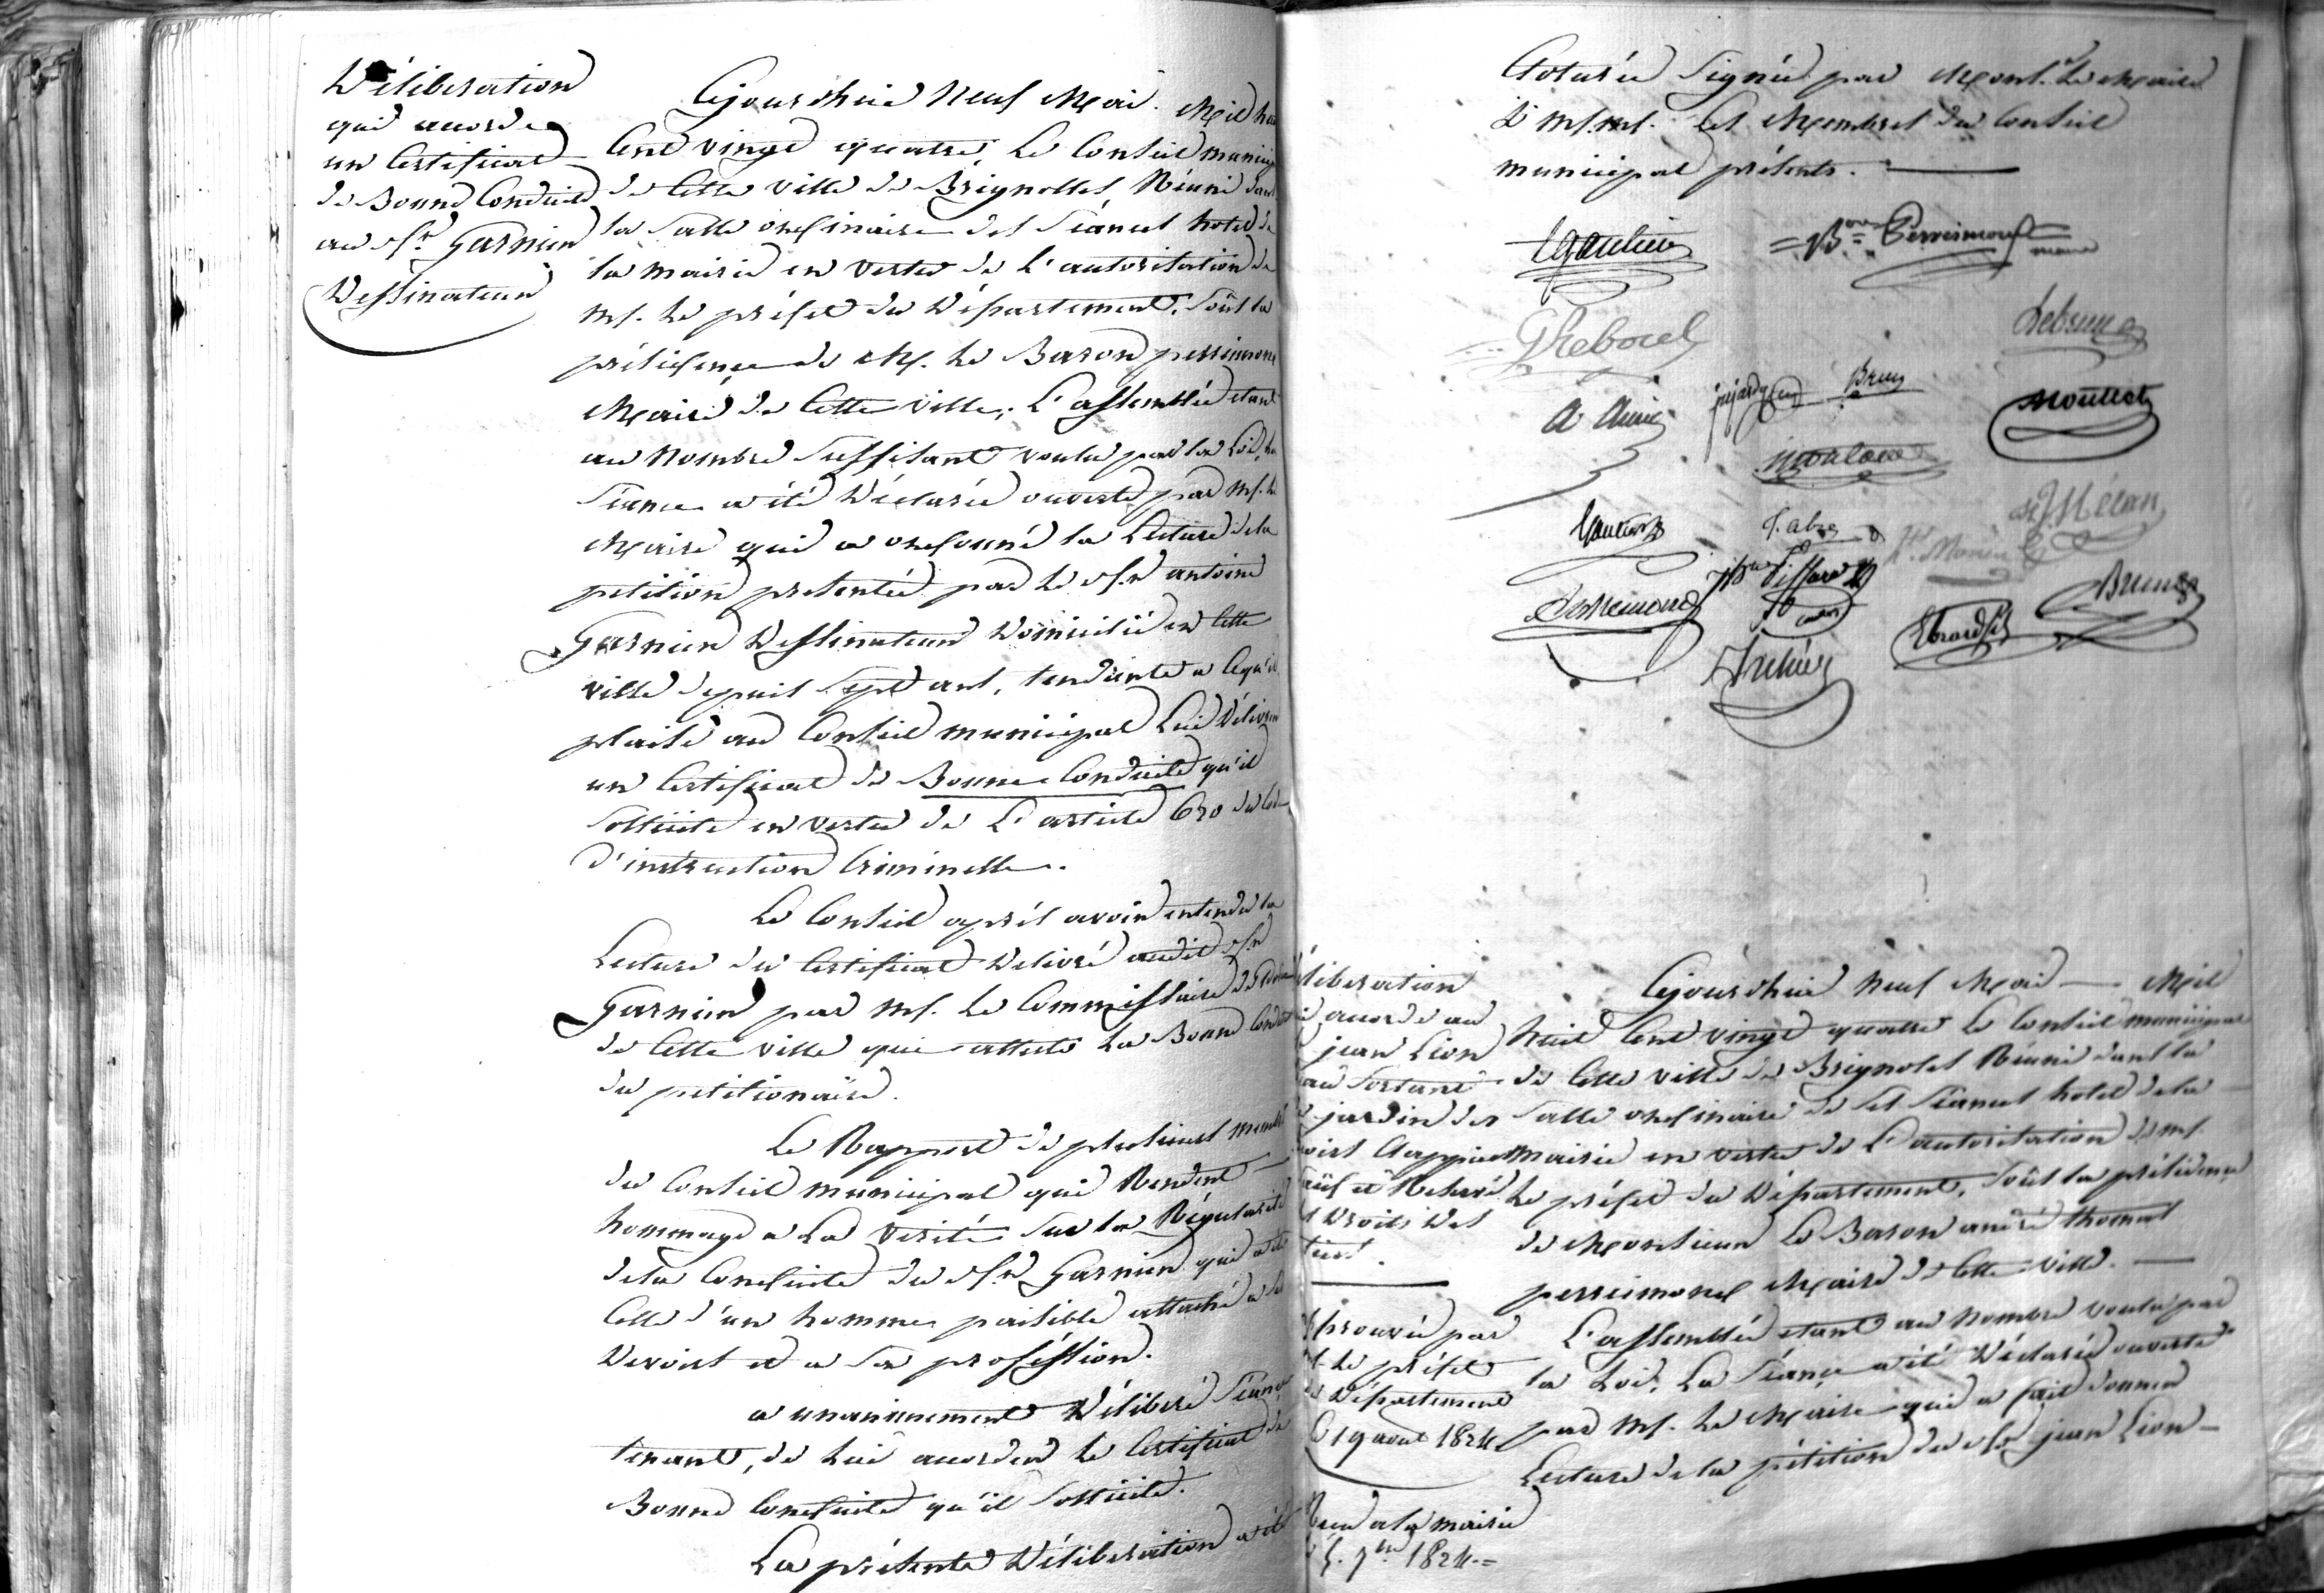 Déliberation
qui accorde
un Certificat
de Bonne Conduite
au Sr. Garnier
Dessinateur
Cejourdhui neuf Mai Mil huit
Cent vingt quatre, Le Conseil municip
de Cette ville de Brignolles Réuni dans
la Salle ordinaire des Séances hotel de
la mairie en vertu de l'autorisation de
Mr. Le préfet du Département, Sous la
présidence de Mr. Le Baron perrimond
Maire de Cette ville, L'assemblée etant
au Nombre Suffisant voulu par la Loi, la
Séance a été Déclarée ouverte par Mr. le
Maire qui a ordonné la Lecture de la
petition presentée par Le Sr. antoine
Garnier Dessinateur Domicilié en Cette
ville depuis Sept ans, tendante a Cequ'il
plaise au Conseil municipal Lui Délivrer
un Certificat de Bonne Conduite qu'il
Sollicite en vertu de L'article 620 du Code
d'instruction Criminelle.
Le Conseil après avoir entendu la
Lecture du Certificat Delivré audit Sr.
Garnier par Mr. Le Commissaire de Police
de Cette ville qui atteste La Bonne Conduite
du petitionaire.
Le Rapport de plusieurs membres
du Conseil municipal qui Rendent
hommage a La verité Sur la Régularité
dela Conduite du Sr. Garnier qui a été
Celle d'un homme paisible attaché a ses
Devoirs et a Sa proféssion.
a unanimement Déliberé Séance
tenante, de Lui accorder Le Certificat de
Bonne Conduite qu'il Sollicite.
La présente Déliberation a été
Cloturée Signée par Monsr. Le Maire
& MM. Les Membres du Conseil
municipal présents.
Bon Perrimond
maire
Reboul
Lebrun
Brun
Moutton
Gautier
Fabre
Perrimond
Brun
éliberation
i accorde au
jean Lion
au Sortant
jardin des
Sauf et Réservé
s Droits Des
tiers.
Approuvé par
Mr. Le préfet
du Département
Le 19 aout 1824
Recu ala mairie
Le 5. 7bre 1824.=
Cejourdhui neuf Mai — Mil
huit Cent vingt quatre Le Conseil municipal
de Cette ville de Brignoles Réuni dans la
Salle ordinaire de Ses Séances hotel de la
mairie en vertu de L'autorisation de Mr.
Le préfet du Département, Sous la présidence
de Monsieur Le Baron andré thomas
perrimond Maire de Cette ville. —
L'assemblée etant au Nombre voulu par
la Loi, La Séance a été Déclarée ouverte
par Mr. Le Maire qui a fait donner
Lecture de la pétition du Sr. jean Lion —